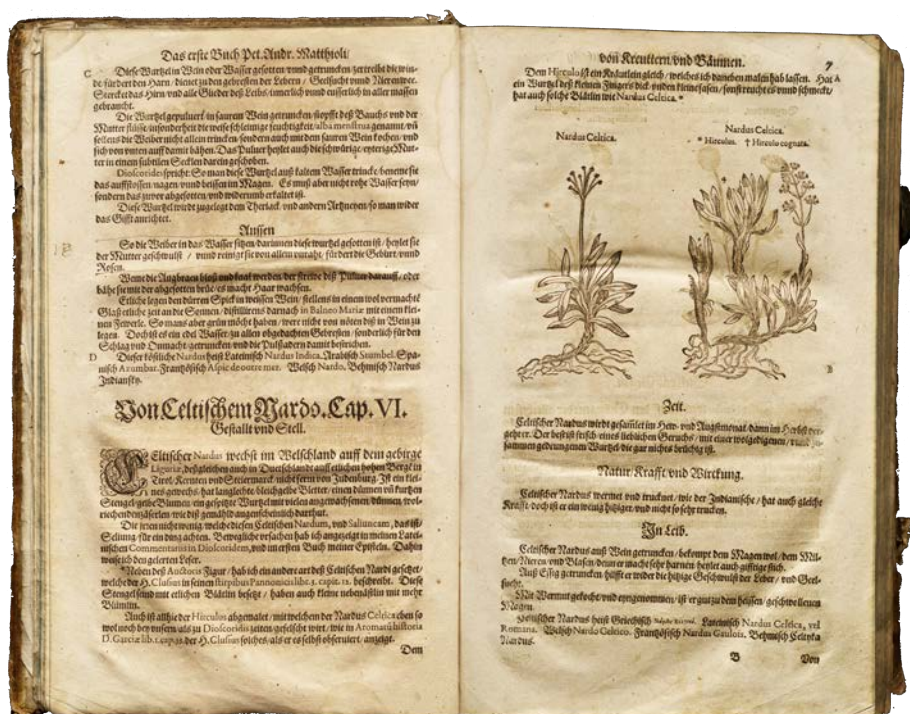 Das erste Buch Pet. Andr. Matthioli/
C Diese Wurtzel in Wein oder Wasser gesotten vnnd getruncken zertreibt die win-
de fürdert den Harn / dienet zu den gebresten der Lebern / Geelsucht vnnd Nierenwee.
Stercket das Hirn/vnd alle Glieder deß Leibs/innerlich vnd eusserlich in aller massen
gebraucht.
Die Wurtzel gepuluert in saurem Wein getruncken/stopfft deß Bauchs vnd der
Mutter flüsse/insonderheit die weisse schleimige feuchtigkeit/alba menstrua genannt/vñ
sollens die Weiber nicht allein trincken/sondern auch mit dem sauren Wein kochen/vnd
sich von vnten auff damit bähen. Das Puluer heylet auch die schwürige/eyterige Mut-
ter in einem subtilen Secklen darein geschoben.
Dioscorides spricht: So man diese Wurtzel auß kaltem Wasser trincke/beneme sie
das auffstossen nagen/vnnd beissen im Magen. Es muß aber nicht rohe Wasser seyn/
sondern das zuvor abgesotten/vnd widerumb erkaltet ist.
Diese Wurtzel wirdt zugelegt dem Theriack/vnd andern Artzneyen/so man wider
das Gifft anrichtet.
Aussen
So die Weiber in das Wasser sitzen/darinnen diese wurtzel gesotten ist / heylet sie
der Mutter geschwulst / vnnd reinigt sie von allem vnraht/fürdert die Geburt/vnnd
Rosen.
Wenn die Augbraen bloß vnd kaal werden/der strewe diß Puluer darauff / oder
bähe sie mit der abgesotten brüe/es macht Haar wachsen.
Etliche legen den dürren Spick in weissen Wein/stellens in einem wol vermachtē
Glaß etliche zeit an die Sonnen / distillirens darnach in Balneo Mariæ mit einem klei-
nen Fewerle. So mans aber grün möcht haben / were nicht von nöten diß in Wein zu
legen. Doch ist es ein edel Wasser/zu allen obgedachten Gebresten/sonderlich für den
Schlag vnd Onmacht/getruncken/vnd die Pulßadern damit bestrichen.
D Dieser köstliche Nardus heist Lateinisch Nardus Indica. Arabisch Sumbel. Spa-
nisch Azumbar. Frantzösisch Aspic de outre mer. Welsch Nardo. Behmisch Nardus
Indiansky.
Von Celtischem Nardo. Cap. VI.
Gestallt vnd Stell.
CEltischer Nardus wechst im Welschland auff dem gebirge
Liguriæ, deßgleichen auch in Duetschlandt auff etlichen hohen Bergē in
Tirol/Kernten vnd Steiermarck/nicht fern von Judenburg. Ist ein klei-
nes gewechs/hat langlechte/bleichgelbe Bletter/einen dünnen vñ kurtzen
Stengel/gelbe Blumen/ein gespitzte Wurtzel mit vielen angewachsenen/dünnen/wol-
riechenden zäserlen/wie diß gemähld augenscheinlich darthut.
Die irren nicht wenig/welche diesen Celtischen Nardum, vnd Saliuncam, das ist/
Seliung/für ein ding achten. Bewegliche vrsachen hab ich angezeigt in meinen Latei-
nischen Commentariis in Dioscoridem, vnd im ersten Buch meiner Episteln. Dahin
weise ich den gelerten Leser.
*Neben deß Auctoris Figur hab ich ein andere art deß Celtischen Nardi gesetzt/
welche der H. Clusius in seinen stirpibus Pannonicis libr. 3. capit. 12. beschreibt. Diese
Stengel sind mit etlichen Blätlin besetzt / haben auch kleine nebenästlin mit mehr
Blümlin.
Auch ist allhie der Hirculus abgemalet / mit welchem der Nardus Celtica eben so
wol noch bey vnsern/als zu Dioscoridis zeiten/gefelscht wirt/wie in Aromatū historia
D. Garciæ lib. 1. cap. 28. der H. Clusius solches/als er es selbst obseruiert/anzeigt.
Dem
von Kreuttern/vnd Bäumen. 7
Dem Hirculo ist ein Kräutlein gleich / welches ich daneben malen hab lassen. Hat A
ein Wurtzel deß kleinen Fingers dick/vnd ein kleine fasen/sonst reucht es vnnd schmeckt/
hat auch solche Blätlin wie Nardus Celtica. *
Nardus Celtica.
Nardus Celtica.
* Hirculus. † Hirculo cognata.
B
Zeit.
Celtischer Nardus wirdt gesamlet im Hew- vnd Augstmonat/dann im Herbst ver-
geht er. Der best ist frisch/eines lieblichen Geruchs / mit einer wolgedigenen/
sammen gedrungenen Wurtzel/die gar nichts brüchig ist.
Natur/Krafft/vnd Wirckung.
Celtischer Nardus wermet vnd trucknet / wie der Indianische / hat auch gleiche
Krafft/doch ist er ein wenig hitziger/vnd nicht so sehr trucken.
In Leib.
Celtischer Nardus auß Wein getruncken / bekompt dem Magen wol / dem Mil-
tzen/Nieren vnd Blasen/denn er macht sehr harnen/heylet auch gifftige stich.
Auß Essig getruncken hülfft er wider die hitzige Geschwulst der Leber / vnd Geel-
sucht.
Mit Wermut gekocht/vnd eyngenommen / ist er gut zu dem heissen/geschwollenen
Magen.
Celtischer Nardus heist Griechisch Lateinisch Nardus Celtica, vel
Romana. Welsch Nardo Celtico. Frantzösisch Nardus Gaulois. Behmisch Celtyka
Nardus.
B Von